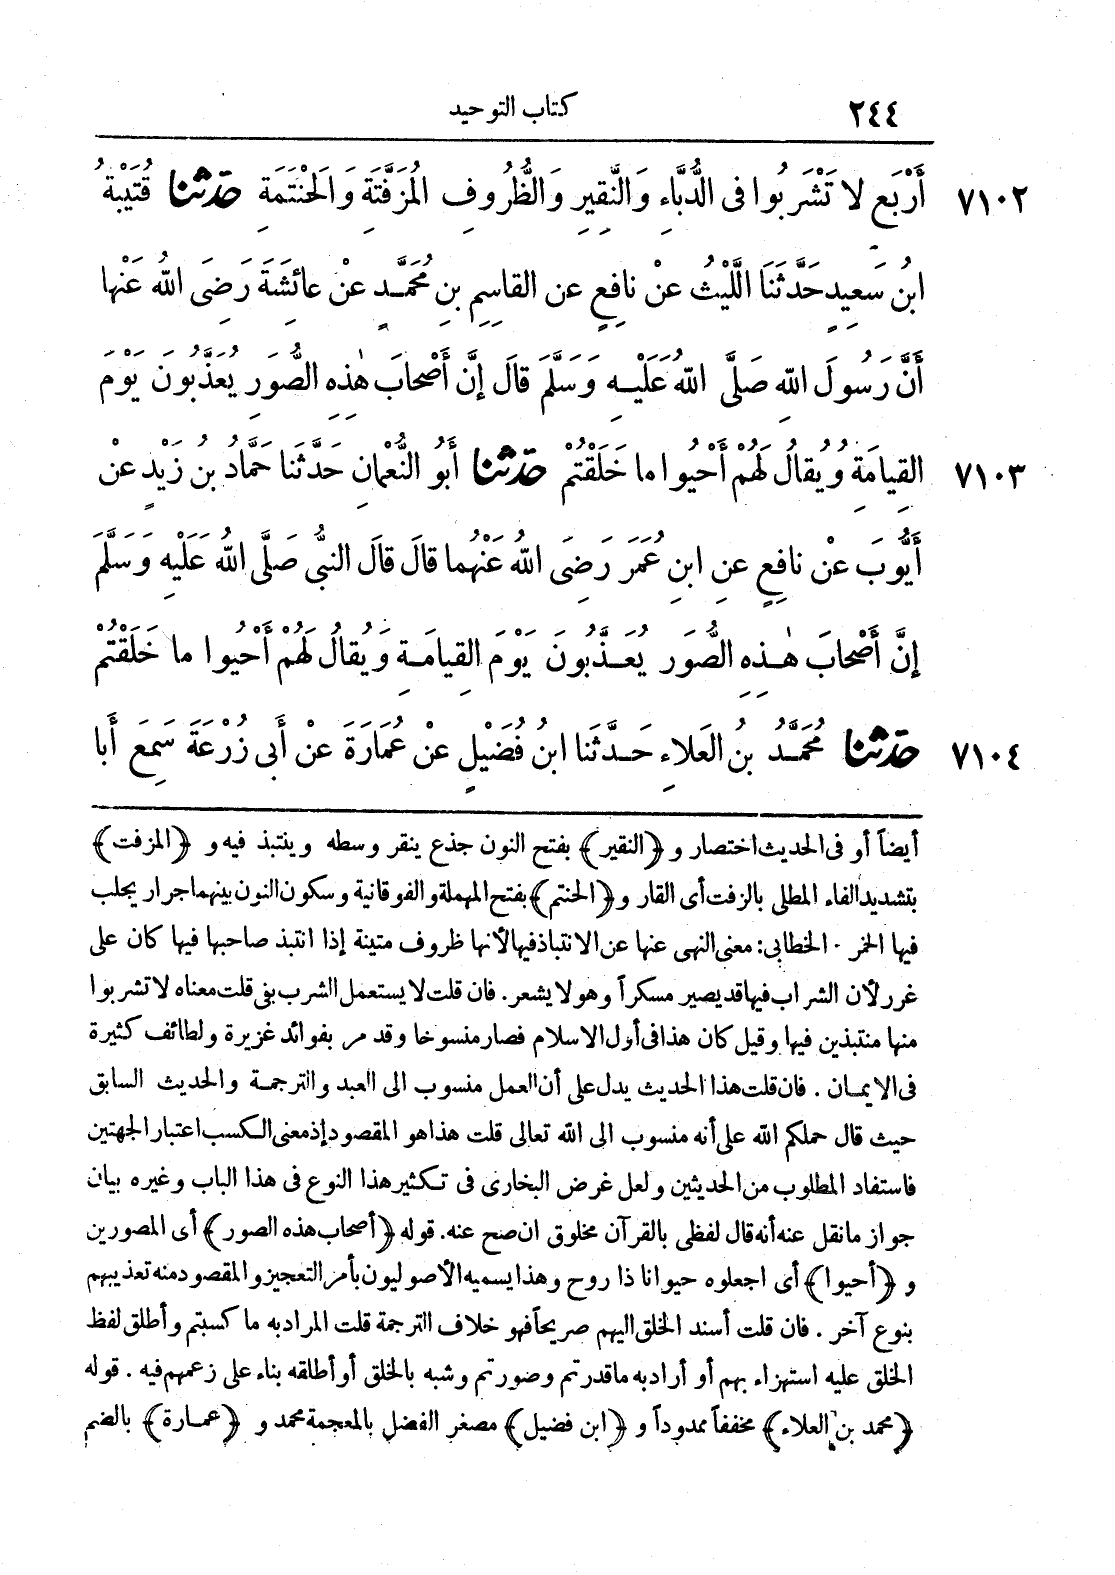 ٢٤٤ كتاب التوحيد
٧١٠٢ أَرْبَعٍ لا تَشْرَبُوا فى الدُّبَّاءِ وَالنَّقِيرِ وَالظُّرُوفِ المُزَفَّتَةِ وَالحَنْتَمَةِ حَدَّثَنَا قُتَيْبَةُ
ابنُ سَعِيدٍ حَدَّثَنَا اللَّيْثُ عَنْ نافِعٍ عن القاسِمِ بنِ مُحَمَّدٍ عَنْ عائِشَةَ رَضِىَ اللهُ عَنْها
أَنَّ رَسُولَ اللهِ صَلَّى اللهُ عَلَيْهِ وَسَلَّمَ قالَ إنَّ أَصْحابَ هٰذِهِ الصُّوَرِ يُعَذَّبُونَ يَوْمَ
٧١٠٣ القِيامَةِ وَيُقالُ لَهُمْ أَحْيُوا ما خَلَقْتُمْ حَدَّثَنَا أَبُو النُّعْمانِ حَدَّثَنا حَمَّادُ بنُ زَيْدٍ عن
أَيُّوبَ عَنْ نافِعٍ عنِ ابنِ عُمَرَ رَضِىَ اللهُ عَنْهُما قالَ قالَ النبىُّ صَلَّى اللهُ عَلَيْهِ وَسَلَّمَ
إنَّ أَصْحابَ هٰذِهِ الصُّوَرِ يُعَذَّبُونَ يَوْمَ القِيامَةِ وَيُقالُ لَهُمْ أَحْيُوا ما خَلَقْتُمْ
٧١٠٤ حَدَّثَنَا مُحَمَّدُ بنُ العَلاءِ حَدَّثَنا ابنُ فُضَيْلٍ عَنْ عُمَارَةَ عَنْ أَبى زُرْعَةَ سَمِعَ أَبا
أيضاً أو فى الحديث اختصار و ﴿النقير﴾ بفتح النون جذع ينقر وسطه وينتبذ فيه و ﴿المزفت﴾
بتشديد الفاء المطلى بالزفت أى القار و ﴿الحنتم﴾ بفتح المهملة والفوقانية وسكون النون بينهما جرار يجلب
فيها الخمر . الخطابى: معنى النهى عنها عن الانتباذ فيها لأنها ظروف متينة إذا انتبذ صاحبها فيها كان على
غرر لأن الشراب فيها قد يصير مسكراً وهو لا يشعر. فان قلت لا يستعمل الشرب بفى قلت معناه لا تشربوا
منها منتبذين فيها وقيل كان هذا فى أول الاسلام فصار منسوخا وقد مر بفوائد غزيرة ولطائف كثيرة
فى الايمان . فان قلت هذا الحديث يدل على أن العمل منسوب الى العبد والترجمة والحديث السابق
حيث قال حملكم الله على أنه منسوب الى الله تعالى قلت هذا هو المقصود إذ معنى الكسب اعتبار الجهتين
فاستفاد المطلوب من الحديثين ولعل غرض البخارى فى تكثير هذا النوع فى هذا الباب وغيره بيان
جواز ما نقل عنه أنه قال لفظى بالقرآن مخلوق ان صح عنه. قوله ﴿أصحاب هذه الصور﴾ أى المصورين
و ﴿أحيوا﴾ أى اجعلوه حيوانا ذا روح وهذا يسميه الأصوليون بأمر التعجيز والمقصود منه تعذيبهم
بنوع آخر . فان قلت أسند الخلق اليهم صريحاً فهو خلاف الترجمة قلت المراد به ما كسبتم وأطلق لفظ
الخلق عليه استهزاء بهم أو أراد به ما قدرتم وصورتم وشبه بالخلق أو أطلقه بناء على زعمهم فيه . قوله
﴿محمد بن العلاء﴾ مخففاً ممدوداً و ﴿ابن فضيل﴾ مصغر الفضل بالمعجمة محمد و ﴿عمارة﴾ بالضم